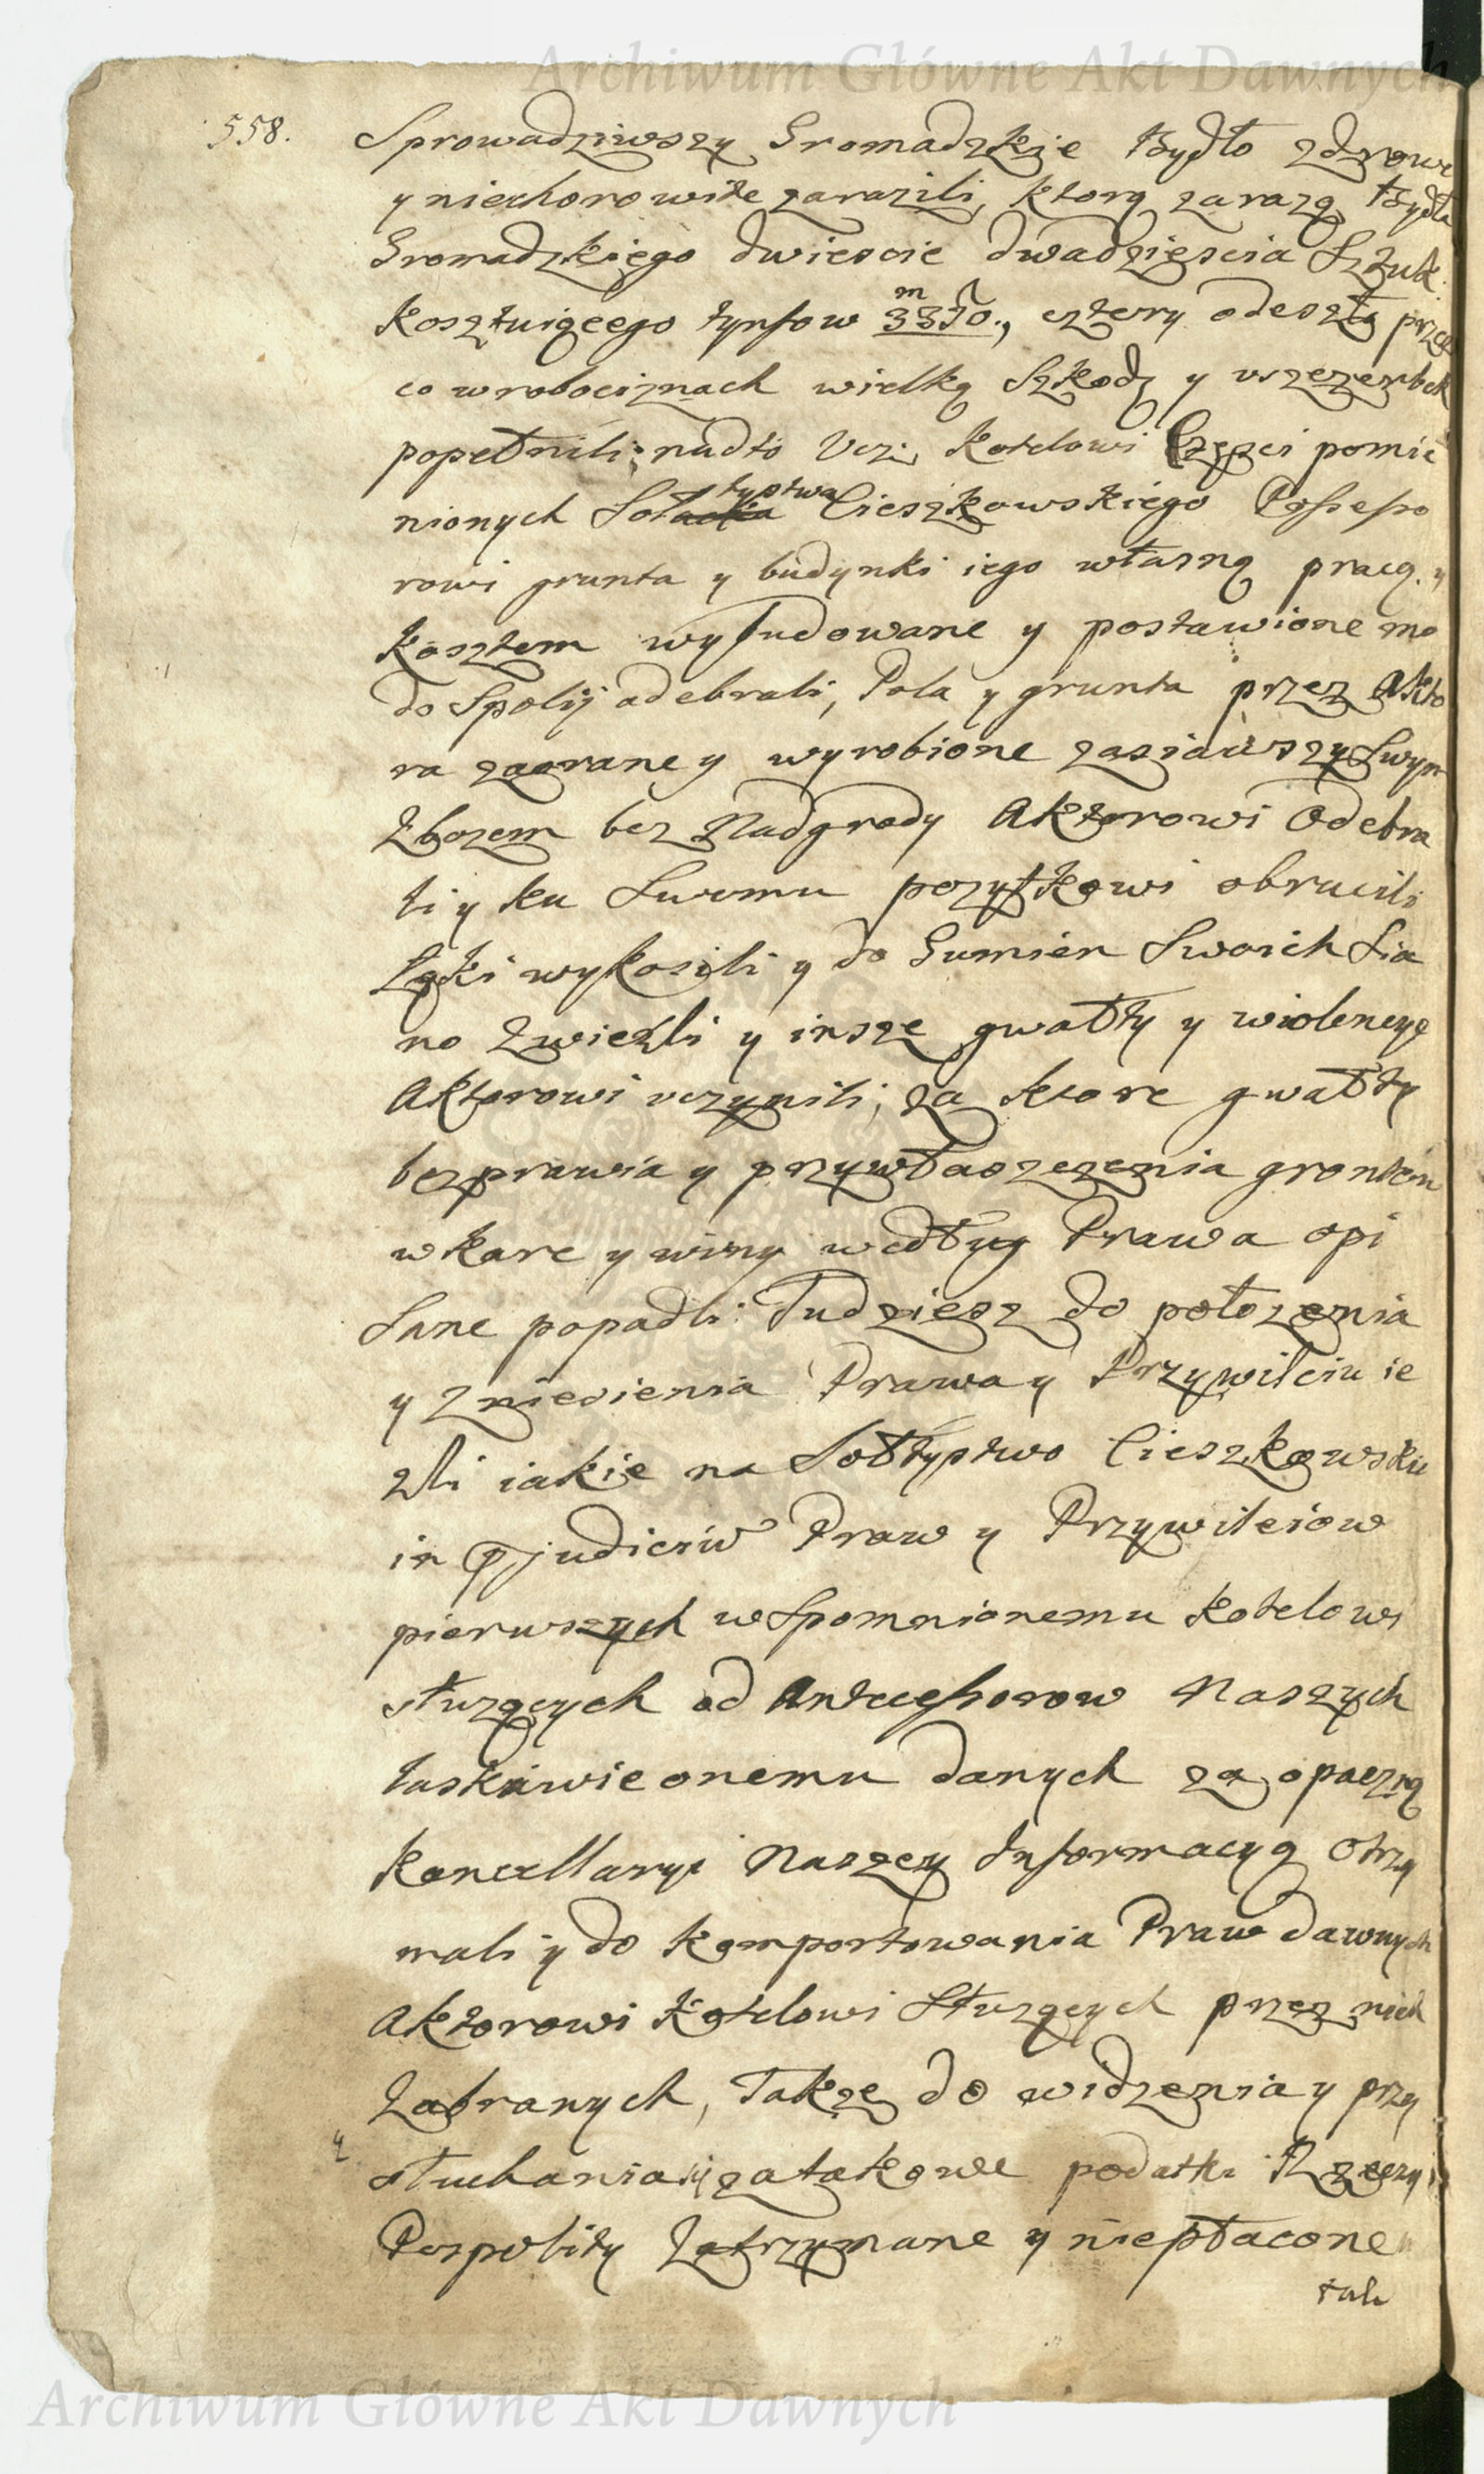 Archiwum Główne Akt Dawnych
558.
Sprowadziwszy Gromadzkie Bydło zdrowe
y niechorowite zarazili, ktorą zarazą Bydła
Gromadzkiego dwiescie dwadziescia Sztuk
kosztuiącego tynfow cztery odeszło przez
co w robociznach wielką Szkodę y uszczerbek
popełnili; nadto Ucz: Kotelowi Części pomie
nionych Soł tystwa Cieszkowskiego Possesso
rowi grunta y budynki iego własną pracą y
kosztem wybudowane y postawione mo
do Spolij odebrali, Pola y grunta przez Akto
ra zaorane y wyrobione zasiawszy Swym
Zbozem bez Nadgrody Aktorowi Odebra
li y ku Swemu pozytkowi obrucili
Łąki wykosili y do Gumien Swoich Sia
no Zwiezli y insze gwałty y wiolencye
Aktorowi uczynili, za ktore gwałty
bezprawia y przywłaszczenia gruntow
w kare y winy według Prawa opi
Sane popadli. Tudziesz do połozenia
y Zniesienia Prawa y Przywileiu ie
zli iakie na Sołtystwo Cieszkowskie
in pjudiciu Praw y Przywileiow
pierwszych wSpomnionemu Kotelowi
słuzących od Antecessorow Naszych
łaskawie onemu danych za opaczną
Kancellaryi Naszey Informacyą Otrzy
mali y do komportowania Praw dawnych
Aktorowi Kotelowi Słuzących przez nich
Zabranych, Takze do widzenia y przy
słuchania iz zatakowe podatki Rzeczy
Pospolity Zatrzymane y niepłacone
tak
Archiwum Główne Akt Dawnych